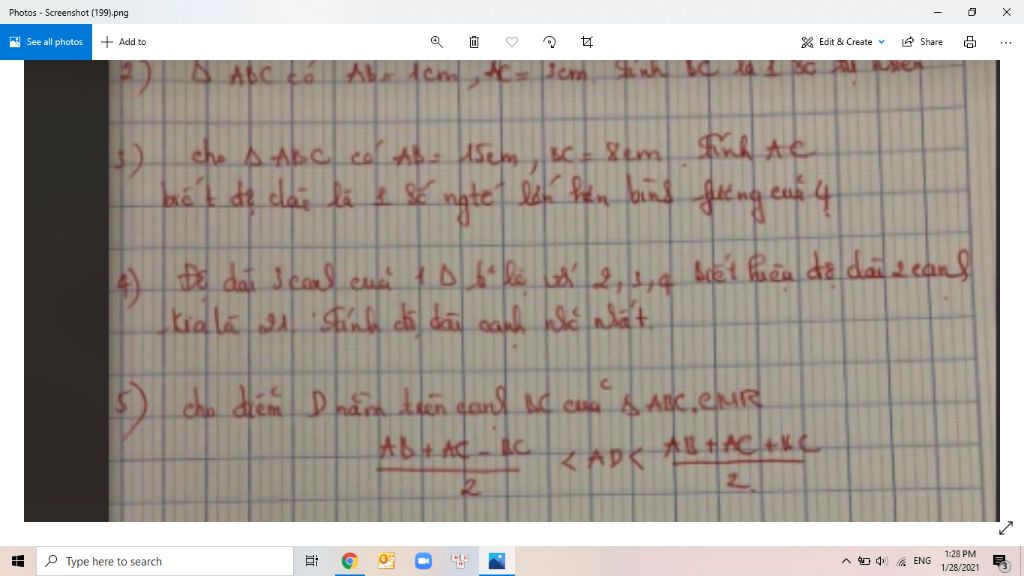 Photos - Screenshot (199).png
See all photos
Add to
Edit & Create
Share
2) Δ ABC có Ab = 1cm, AC = 3cm. tính BC là 1 số tự nhiên
3) cho Δ ABC có AB = 15cm, BC = 8cm. Tính AC
biết độ dài là 1 số ngtố lớn hơn bình fương của 4
4) Độ dài 3 cạnh của 1 Δ tỉ lệ với 2, 3, 4 biết hiệu độ dài 2 cạnh
kia là 21. Tính độ dài cạnh nhỏ nhất.
5) cho điểm D nằm trên cạnh BC của Δ ABC. CMR
AB + AC - BC / 2 < AD < AB + AC + BC / 2.
Type here to search
ENG
1:28 PM
1/28/2021
3